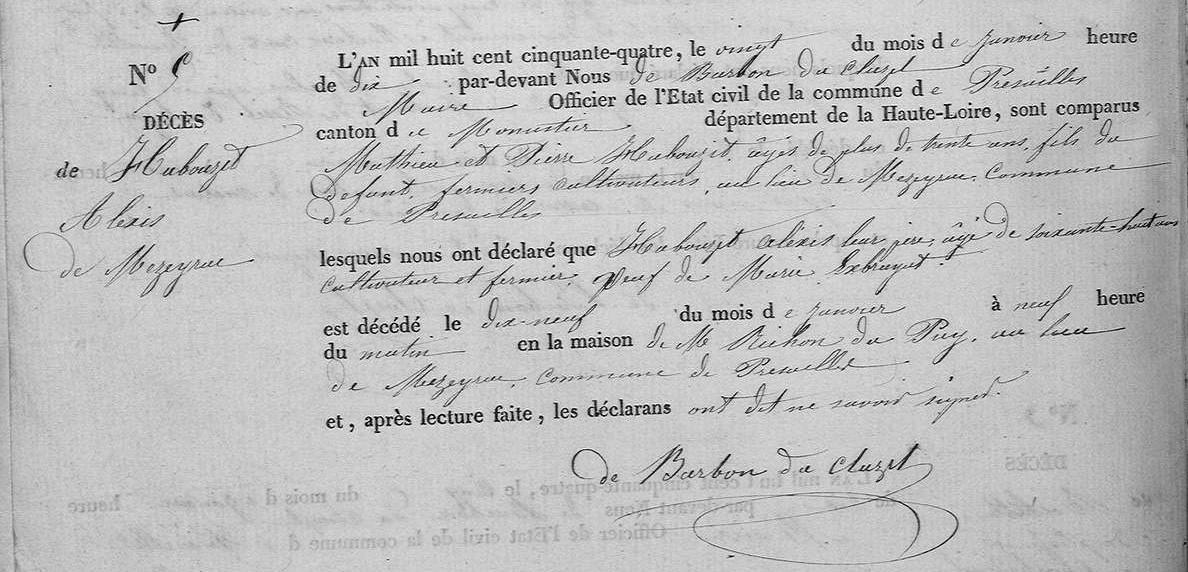 N° 5
DÉCÈS
de Habouzit
Alexis
de Mezeyrac
L'AN mil huit cent cinquante-quatre, le vingt du mois de janvier heure
de dix par-devant Nous de Barbon du Cluzel
Maire Officier de l'Etat civil de la commune de Presailles
canton de Monastier département de la Haute-Loire, sont comparus
Mathieu et Pierre Habouzit, âgés de plus de trente ans, fils du
defunt, fermiers cultivateurs, au lieu de Mezeyrac, commune
de Presailles
lesquels nous ont déclaré que Habouzit Alexis leur père, âgé de soixante-huit ans
cultivateur et fermier, veuf de Marie Exbrayat
est décédé le dix-neuf du mois de janvier à neuf heure
du matin en la maison de Mr Richon du Puy, au lieu
de Mezeyrac, commune de Presailles
et, après lecture faite, les déclarans ont dit ne savoir signer.
de Barbon du Cluzel